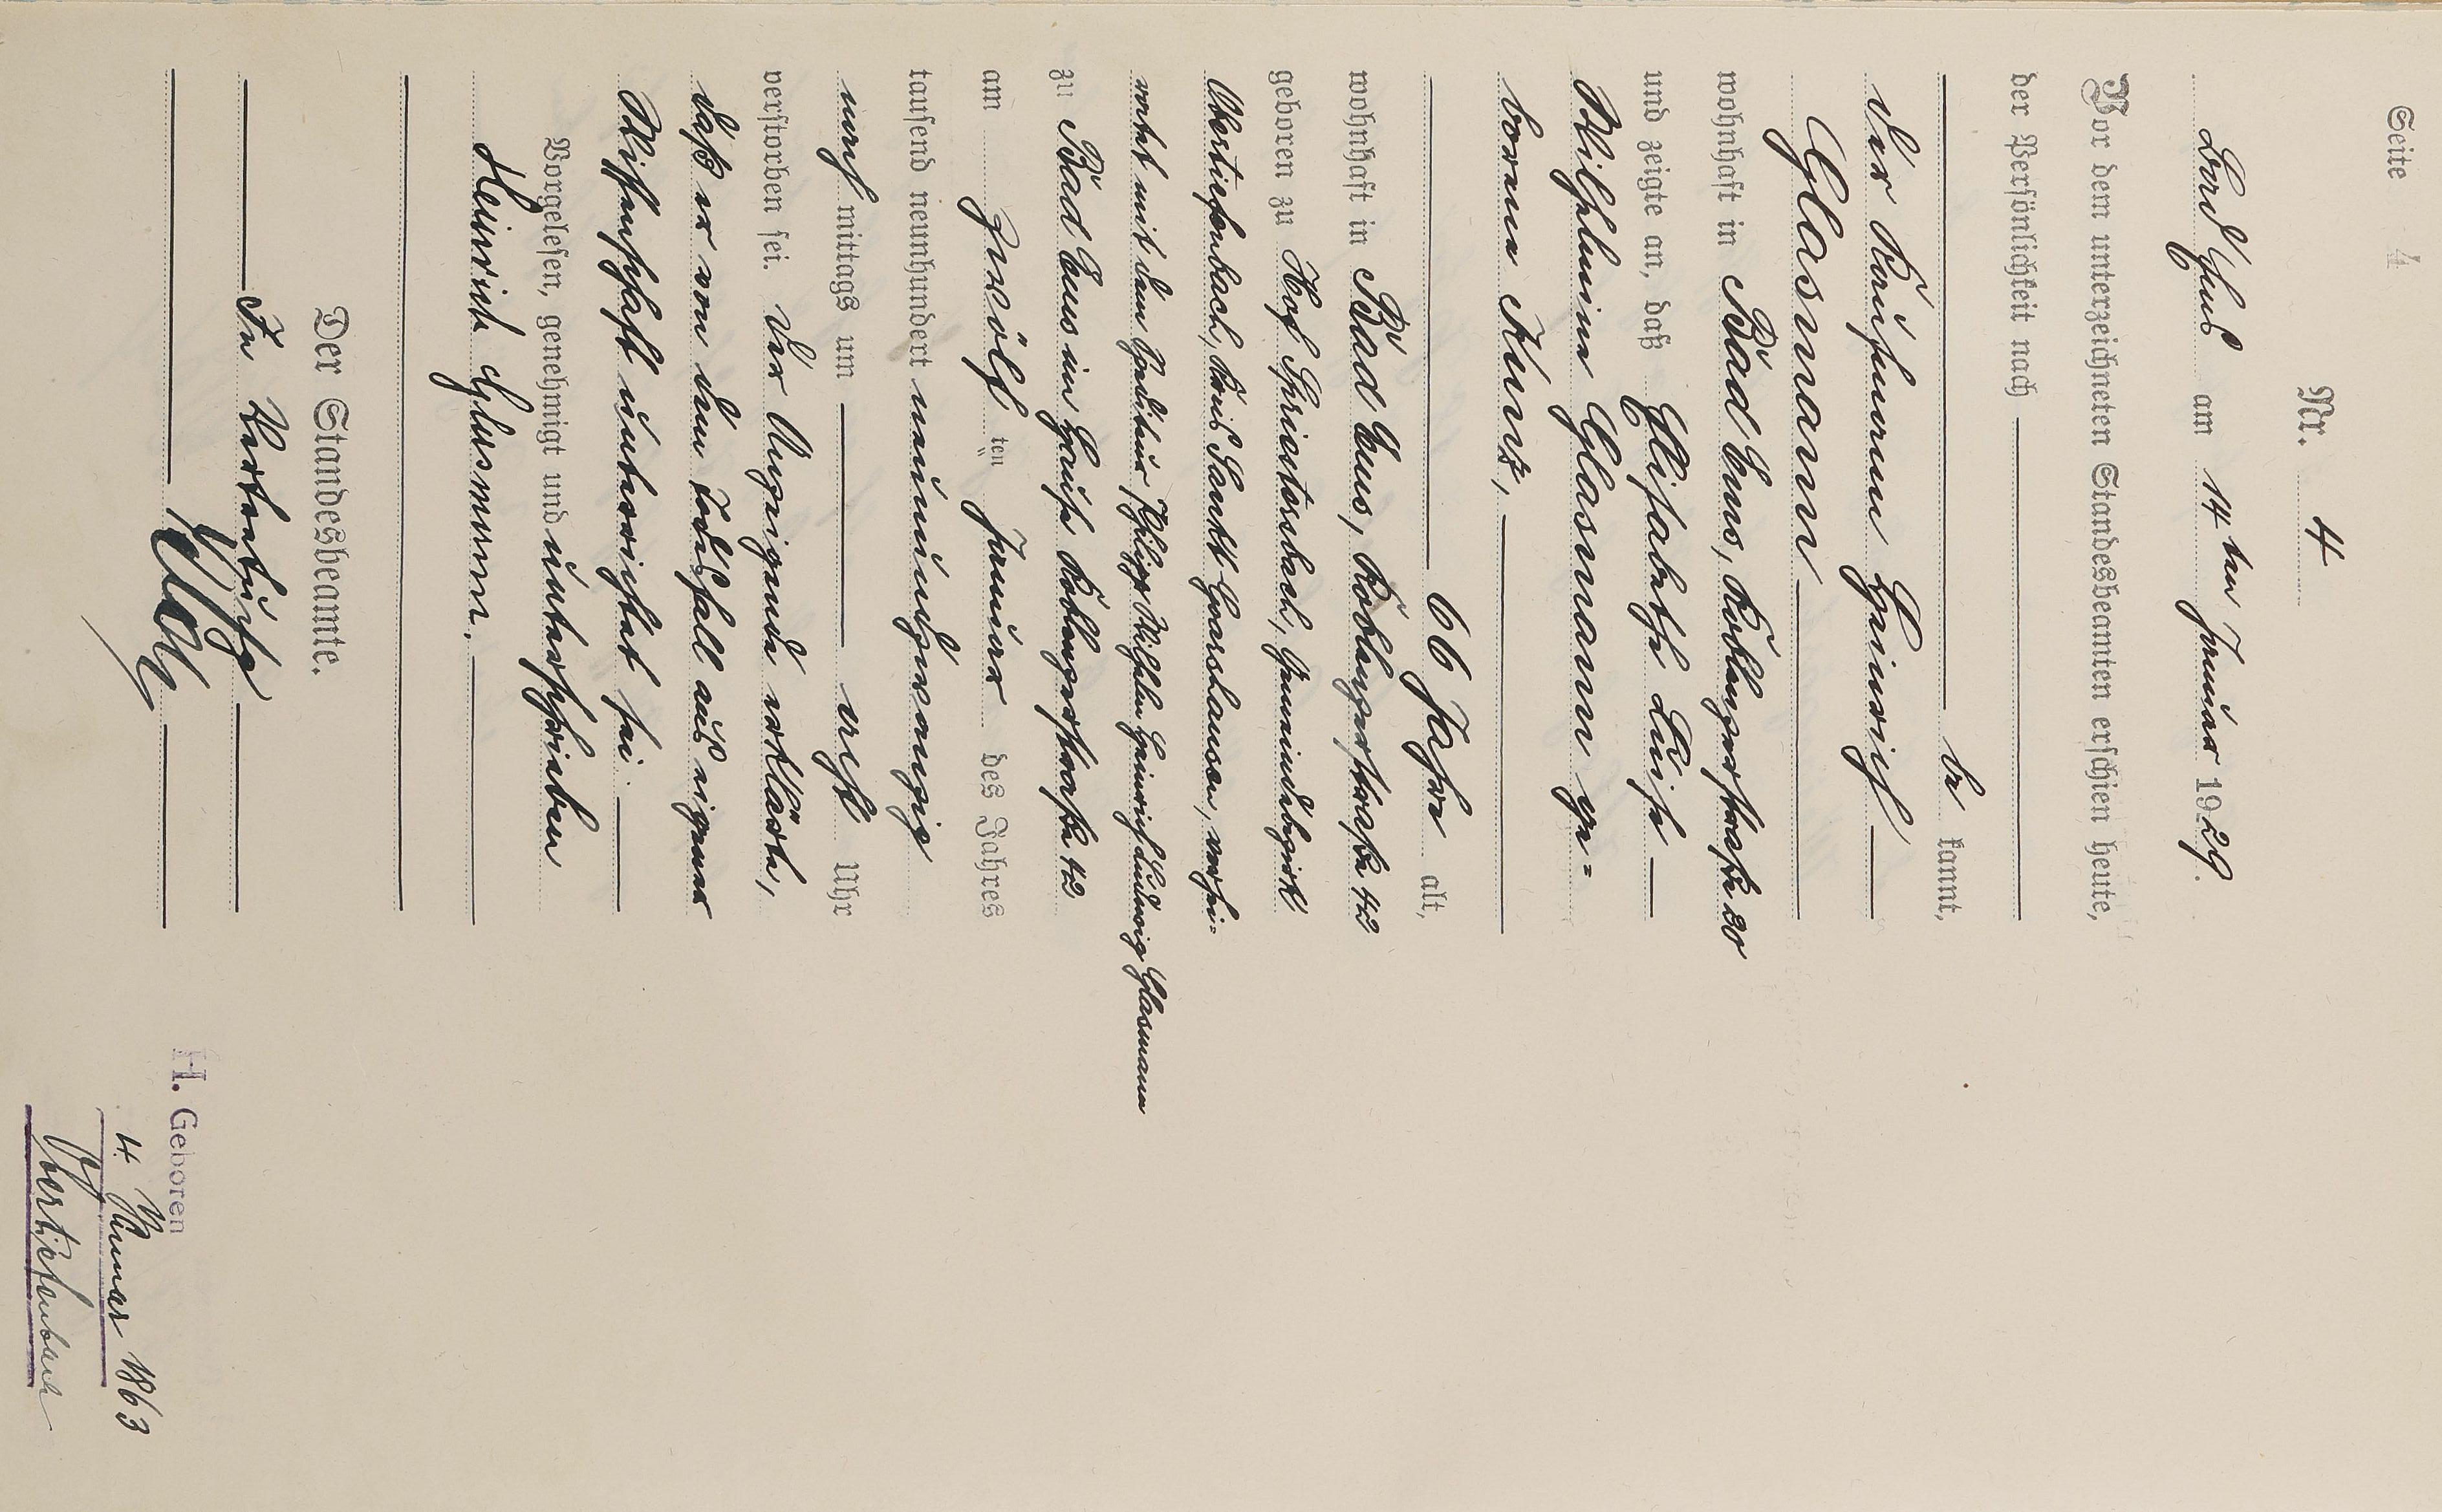 Seite 4
Nr. 4
Bad Ems am 14 ten Januar 1929.
Vor dem unterzeichneten Standesbeamten erschien heute,
der Persönlichkeit nach
be kannt,
der Kaufmann Heinrich
Glasmann
wohnhaft in Bad Ems, Koblenzerstraße 20
und zeigte an, daß Elisabethe Luise
Wilhelmine Glasmann ge=
borene Kurz,
66 Jahre alt,
wohnhaft in Bad Ems, Koblenzerstraße 42
geboren zu Hof Spriestersbach, Gemeindebezirk
Obertiefenbach, Kreis Sankt Goarshausen, verhei=
ratet mit dem Spediteur Philipp Wilhelm Heinrich Ludwig Glasmann
zu Bad Ems im Hause Koblenzerstraße 42
am zwölf ten Januar des Jahres
tausend neunhundert neunundzwanzig
nach mittags um acht Uhr
verstorben sei. Der Anzeigende erklärte,
daß er von dem Todesfall aus eigener
Wissenschaft unterrichtet sei.
Vorgelesen, genehmigt und unterschrieben
Heinrich Glasmann.
Der Standesbeamte.
In Vertretung
H. Geboren
4 Januar 1863
Obertiefenbach